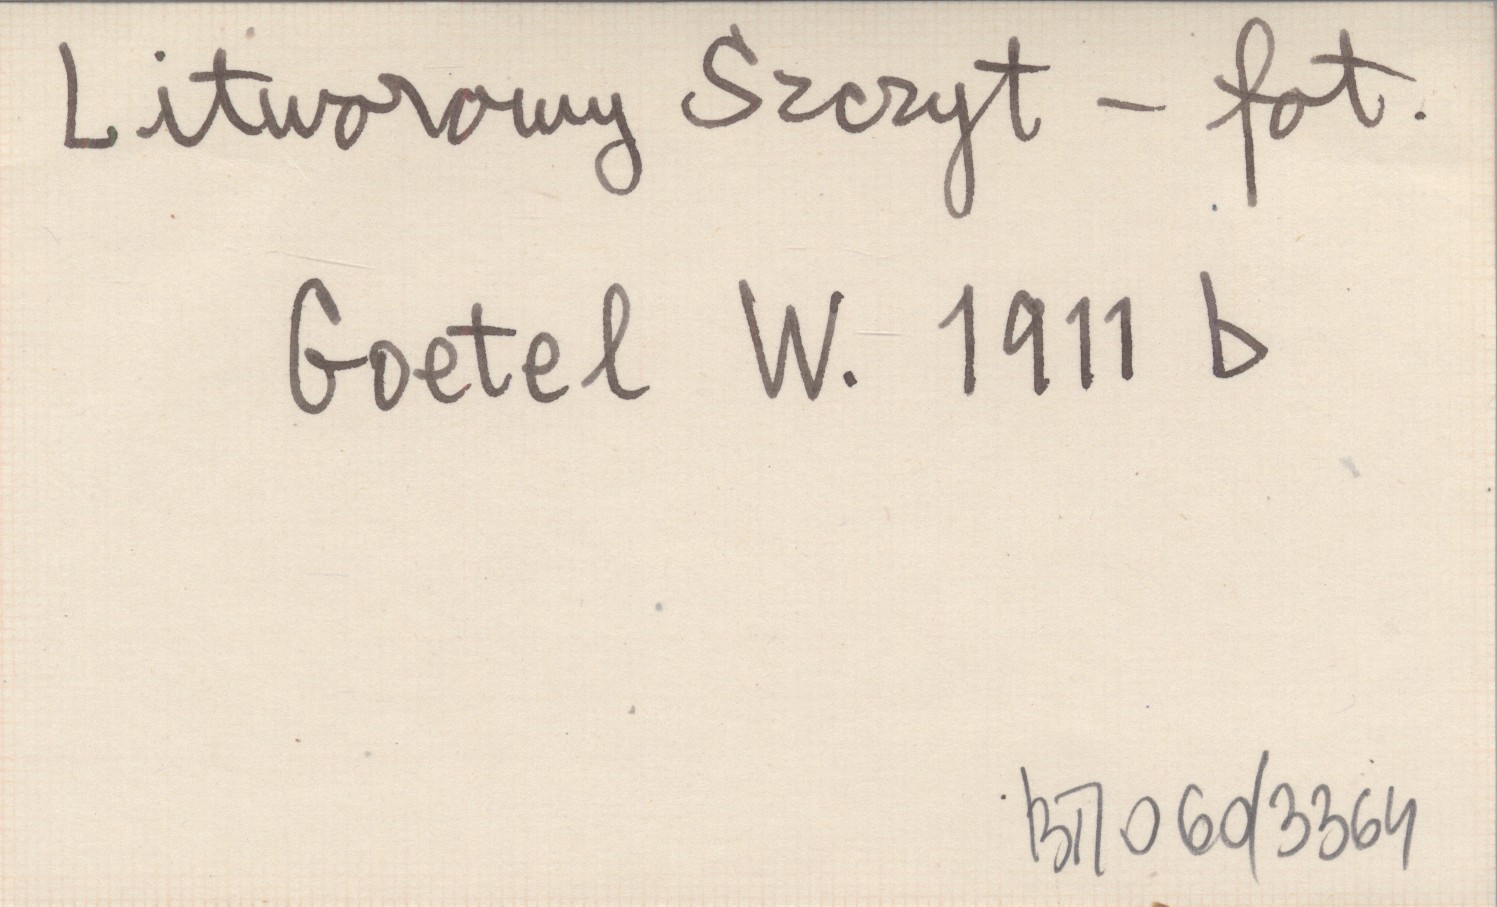 Litworowy Szczyt - fot.
Goetel W. 1911 b
060/3364